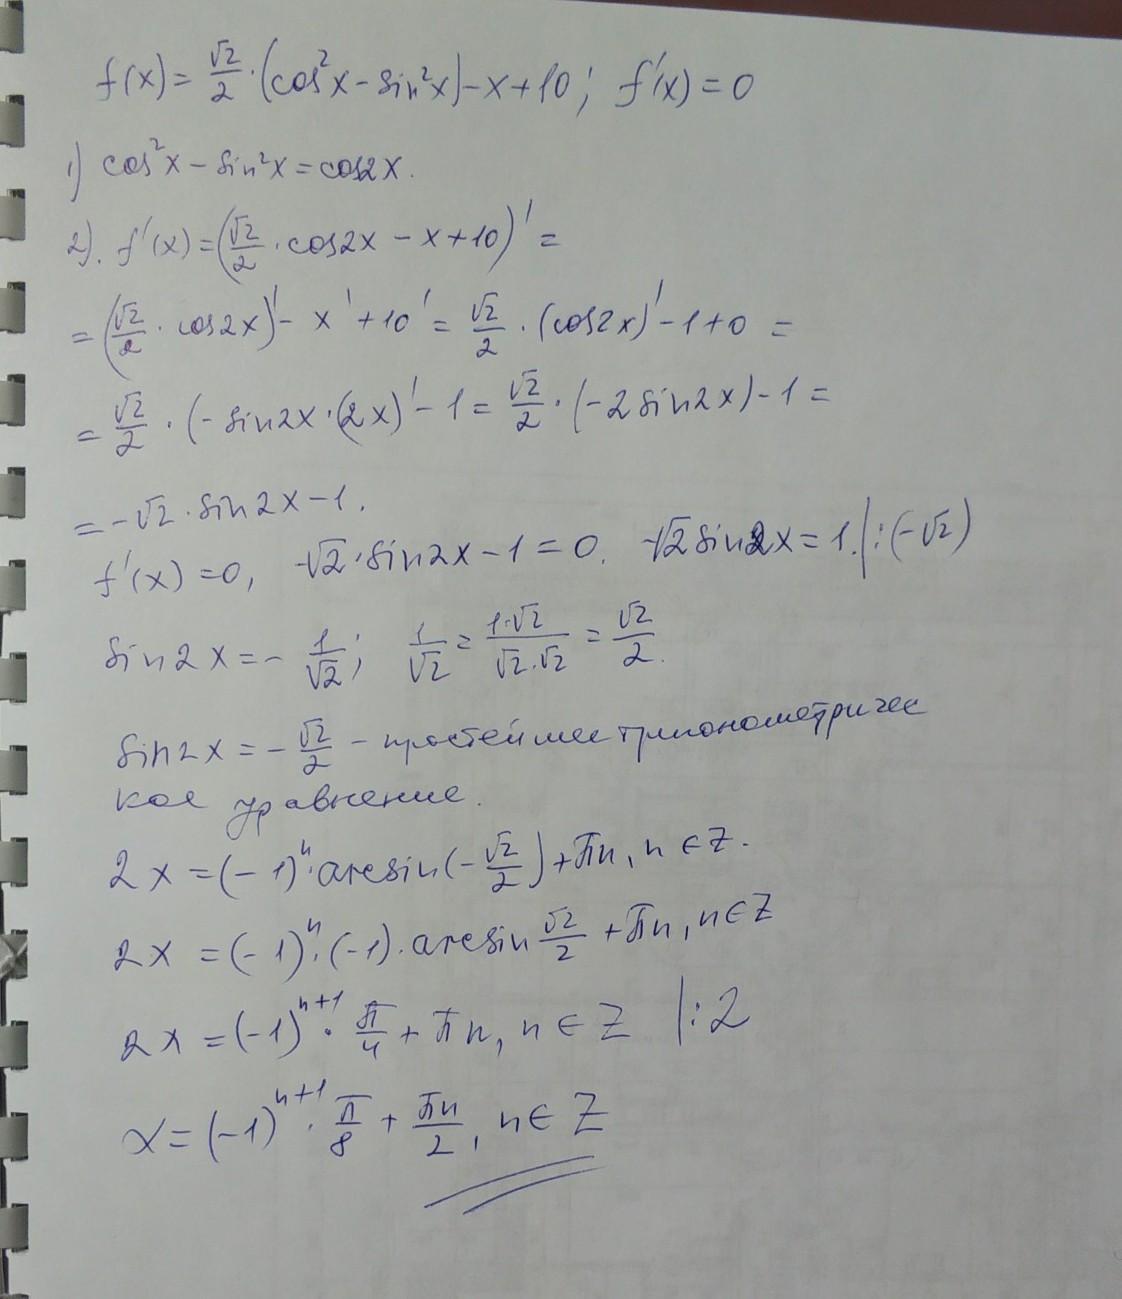 f(x) = √2/2 · (cos²x - sin²x) - x + 10; f'(x) = 0
1) cos²x - sin²x = cos2x.
2). f'(x) = (√2/2 · cos2x - x + 10)' =
= (√2/2 · cos2x)' - x' + 10' = √2/2 · (cos2x)' - 1 + 0 =
= √2/2 · (- sin2x · (2x)' - 1 = √2/2 · (-2sin2x) - 1 =
= -√2 · sin2x - 1.
f'(x) = 0, -√2 · sin2x - 1 = 0. -√2 sin2x = 1. |:(-√2)
sin2x = - 1/√2; 1/√2 = 1·√2/√2·√2 = √2/2.
sin2x = - √2/2 - простейшее тригонометричес
кое уравнение.
2x = (-1)ⁿ · arcsin(-√2/2) + πn, n ∈ Z.
2x = (-1)ⁿ · (-1) · arcsin √2/2 + πn, n ∈ Z
2x = (-1)ⁿ⁺¹ · π/4 + πn, n ∈ Z |:2
x = (-1)ⁿ⁺¹ · π/8 + πn/2, n ∈ Z